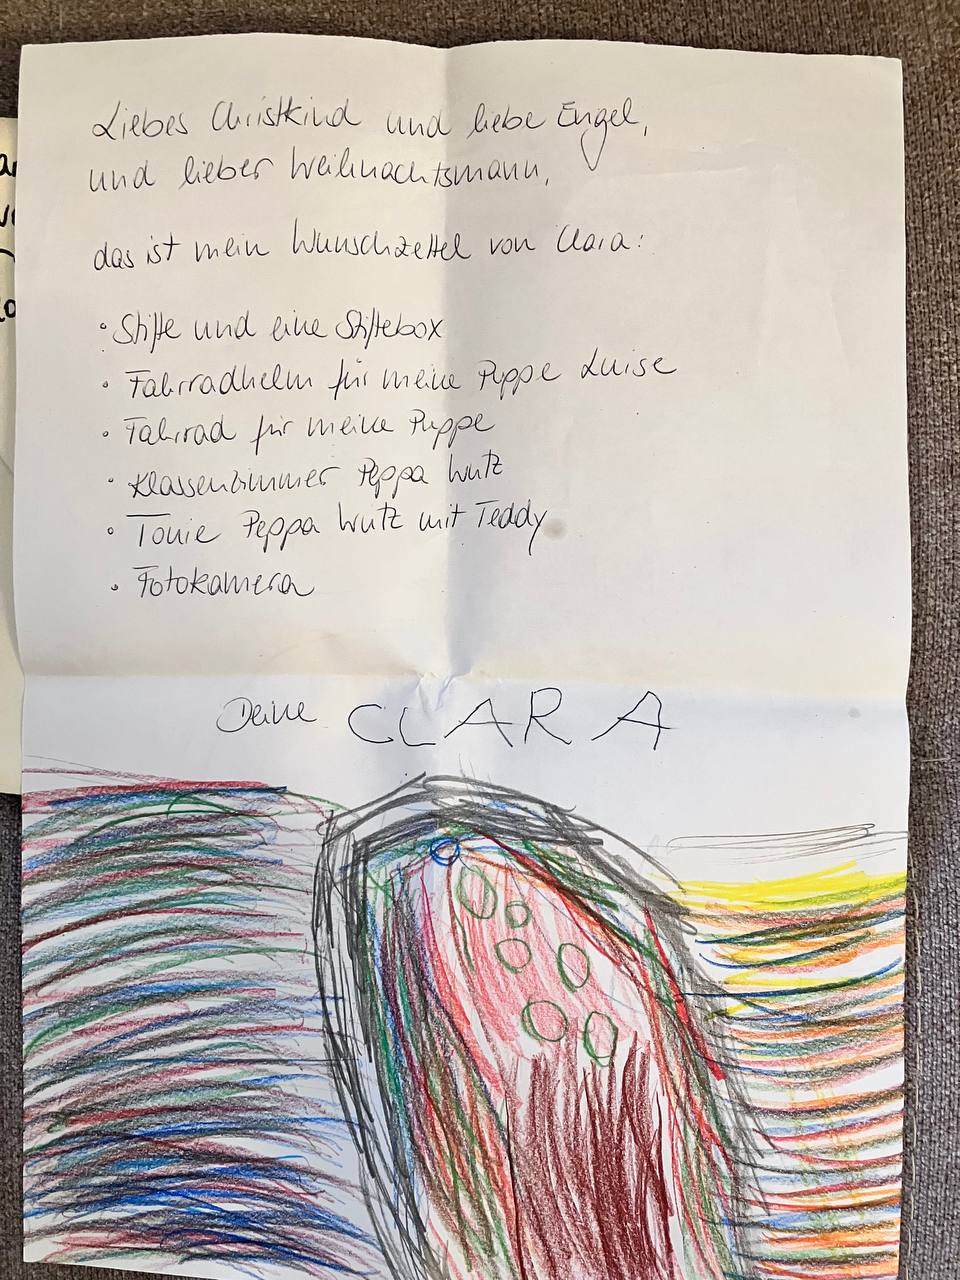 Liebes Christkind und liebe Engel,
und lieber Weihnachtsmann,
das ist mein Wunschzettel von Clara:
• Stifte und eine Stiftebox
• Fahrradhelm für meine Puppe Luise
• Fahrrad für meine Puppe
• Klassenzimmer Peppa Wutz
• Tonie Peppa Wutz mit Teddy
• Fotokamera
Deine CLARA